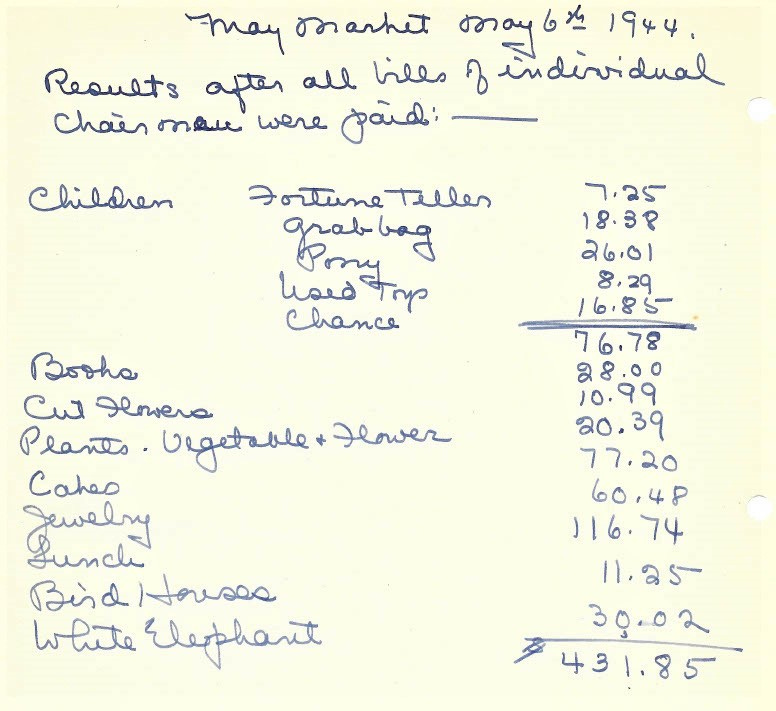 May Market May 6th 1944.
Results after all bills of individual
Chairman were paid: —
Children Fortune Teller 7.25
Grab bag 18.38
Pony 26.01
Used Toys 8.29
Chance 16.85
76.78
Books 28.00
Cut Flowers 10.99
Plants. Vegetable + Flower 20.39
Cakes 77.20
Jewelry 60.48
Lunch 116.74
Bird Houses 11.25
White Elephant 30.02
$431.85